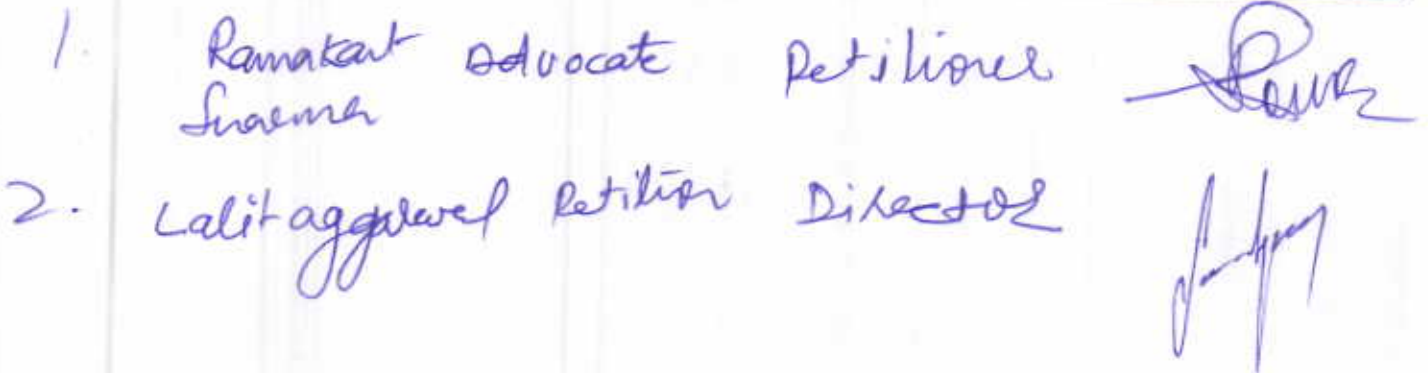 1. Ramakant Advocate Petitioner
Sharma
2. Lalit aggarwal Petition Director